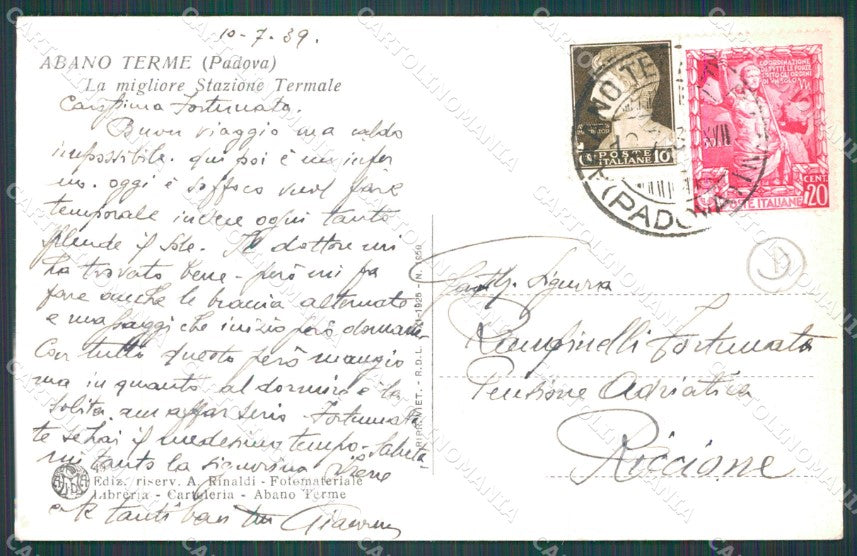 10-7-39.
ABANO TERME (Padova)
La migliore Stazione Termale
Carissima Fortunata.
Buon viaggio ma caldo
impossibile. qui poi è un infer
no. oggi è soffoco vuol fare
temporale invece ogni tanto
splende il sole. Il dottore mi
ha trovato bene. però mi fa
fare anche le braccia alternate
e massaggi che inizio però domani
Con tutto questo però mangio
ma in quanto al dormire è la
solita. un affar serio Fortunata
te se hai il medesimo tempo. Saluta
mi tanto la signorina
Ediz. riserv. A. Rinaldi - Fotomateriale
Libreria - Cartoleria - Abano Terme
e a te tanti baci tua
RIPR. VIET. - R.D.L.
POSTE
ITALIANE 10
ABANO TERME
(PADOVA)
COORDINAZIONE
DI TUTTE LE FORZE
SOTTO GLI ORDINI
DI UN SOLO
CENT.
20
POSTE ITALIANE
Gent. Signora
Rampinelli Fortunata
Pensione Adriatica
Riccione
CARTOLINOMANIA